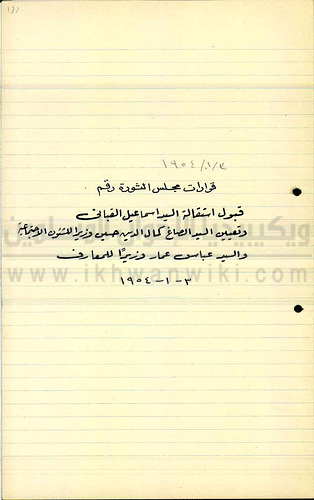 ١٣١
١٩٥٤/١/٣
قرارات مجلس الثورة رقم
قبول استقالة السيد اسماعيل القبانى
وتعيين السيد الصاغ كمال الدين حسين وزيرا للشئون الاجتماعية
والسيد عباس عمار وزيرًا للمعارف
٣-١-١٩٥٤
ويكيبيديا الإخوان المسلمين
www.ikhwanwiki.com